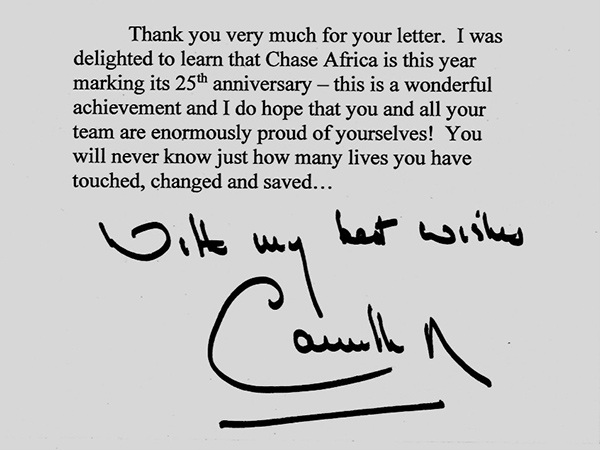 Thank you very much for your letter. I was
delighted to learn that Chase Africa is this year
marking its 25th anniversary – this is a wonderful
achievement and I do hope that you and all your
team are enormously proud of yourselves! You
will never know just how many lives you have
touched, changed and saved…
With my best wishes
Camilla R